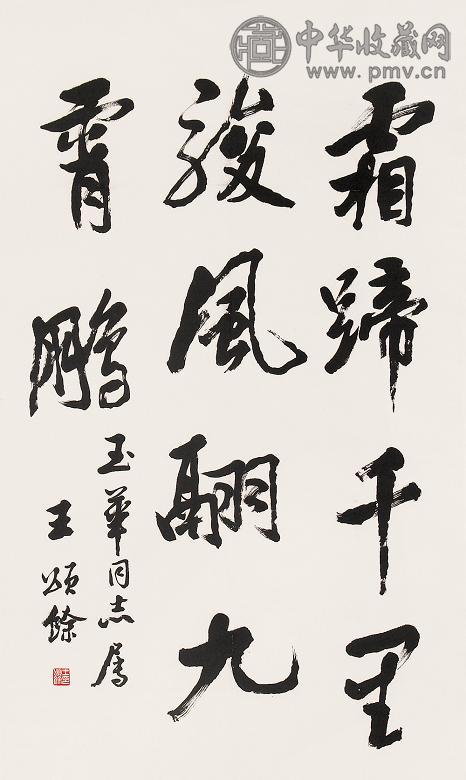 中华收藏网
www.pmv.cn
霜蹄千里
骏風翮九
霄鵬
玉華同志属
王頌餘